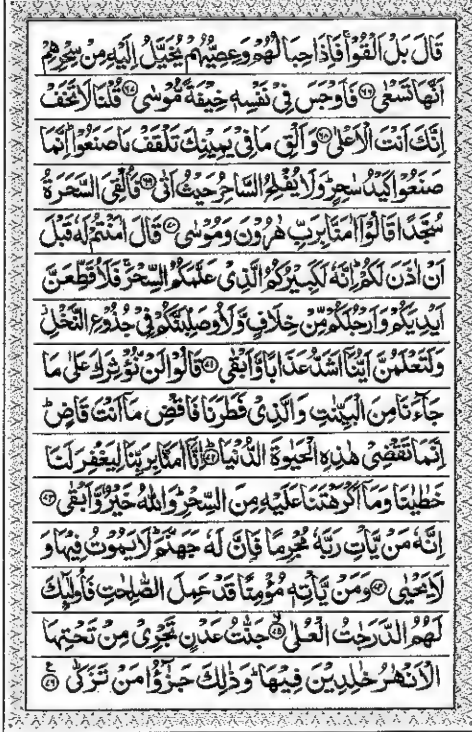 قَالَ بَلْ اَلْقُوْا ۚ فَاِذَا حِبَالُهُمْ وَعِصِيُّهُمْ يُخَيَّلُ اِلَيْهِ مِنْ سِحْرِهِمْ
اَنَّهَا تَسْعٰى ﴿۶۶﴾ فَاَوْجَسَ فِيْ نَفْسِهٖ خِيْفَةً مُّوْسٰى ﴿۶۷﴾ قُلْنَا لَا تَخَفْ
اِنَّكَ اَنْتَ الْاَعْلٰى ﴿۶۸﴾ وَاَلْقِ مَا فِيْ يَمِيْنِكَ تَلْقَفْ مَا صَنَعُوْا ؕ اِنَّمَا
صَنَعُوْا كَيْدُ سٰحِرٍ ؕ وَلَا يُفْلِحُ السَّاحِرُ حَيْثُ اَتٰى ﴿۶۹﴾ فَاُلْقِيَ السَّحَرَةُ
سُجَّدًا قَالُوْۤا اٰمَنَّا بِرَبِّ هٰرُوْنَ وَمُوْسٰى ﴿۷۰﴾ قَالَ اٰمَنْتُمْ لَهٗ قَبْلَ
اَنْ اٰذَنَ لَكُمْ ؕ اِنَّهٗ لَكَبِيْرُكُمُ الَّذِيْ عَلَّمَكُمُ السِّحْرَ ۚ فَلَاُقَطِّعَنَّ
اَيْدِيَكُمْ وَاَرْجُلَكُمْ مِّنْ خِلَافٍ وَّلَاُوصَلِّبَنَّكُمْ فِيْ جُذُوْعِ النَّخْلِ ؗ
وَلَتَعْلَمُنَّ اَيُّنَاۤ اَشَدُّ عَذَابًا وَّاَبْقٰى ﴿۷۱﴾ قَالُوْا لَنْ نُّؤْثِرَكَ عَلٰى مَا
جَآءَنَا مِنَ الْبَيِّنٰتِ وَالَّذِيْ فَطَرَنَا فَاقْضِ مَاۤ اَنْتَ قَاضٍ ؕ
اِنَّمَا تَقْضِيْ هٰذِهِ الْحَيٰوةَ الدُّنْيَا ﴿۷۲﴾ اِنَّاۤ اٰمَنَّا بِرَبِّنَا لِيَغْفِرَ لَنَا
خَطٰيٰنَا وَمَاۤ اَكْرَهْتَنَا عَلَيْهِ مِنَ السِّحْرِ ؕ وَاللّٰهُ خَيْرٌ وَّاَبْقٰى ﴿۷۳﴾
اِنَّهٗ مَنْ يَّاْتِ رَبَّهٗ مُجْرِمًا فَاِنَّ لَهٗ جَهَنَّمَ ؕ لَا يَمُوْتُ فِيْهَا وَ
لَا يَحْيٰى ﴿۷۴﴾ وَمَنْ يَّاْتِهٖ مُؤْمِنًا قَدْ عَمِلَ الصّٰلِحٰتِ فَاُولٰٓئِكَ
لَهُمُ الدَّرَجٰتُ الْعُلٰى ﴿۷۵﴾ جَنّٰتُ عَدْنٍ تَجْرِيْ مِنْ تَحْتِهَا
الْاَنْهٰرُ خٰلِدِيْنَ فِيْهَا ؕ وَذٰلِكَ جَزٰٓؤُا مَنْ تَزَكّٰى ﴿۷۶﴾